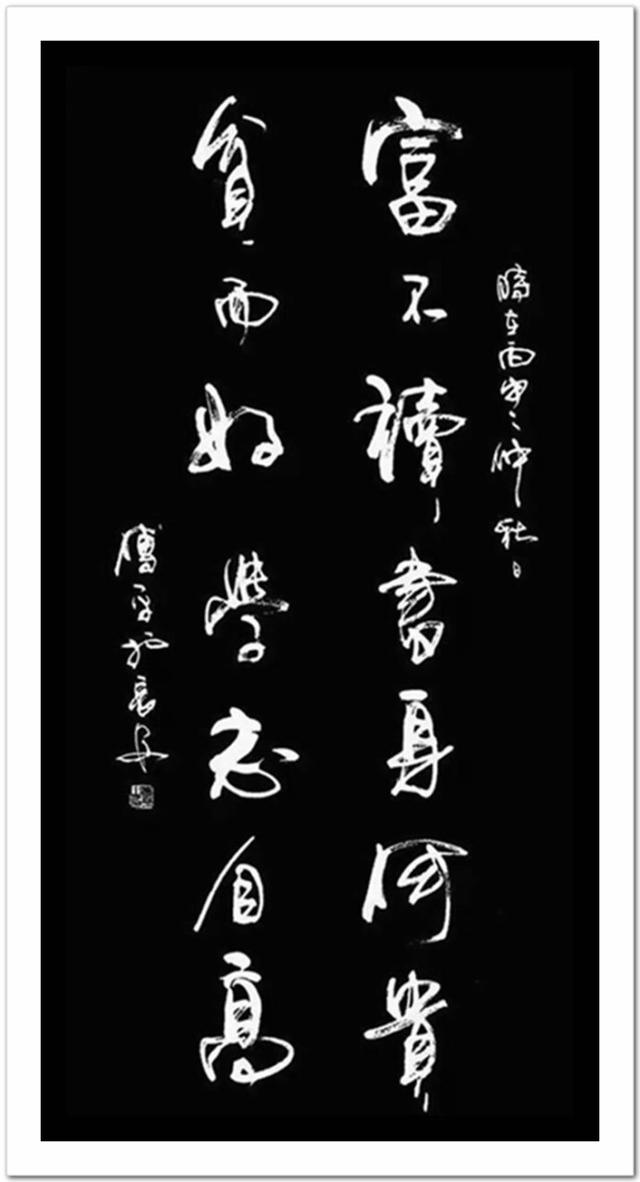 時在丙申之仲秋日
富不讀書身何貴
貧而好學志自高
傅平於長安